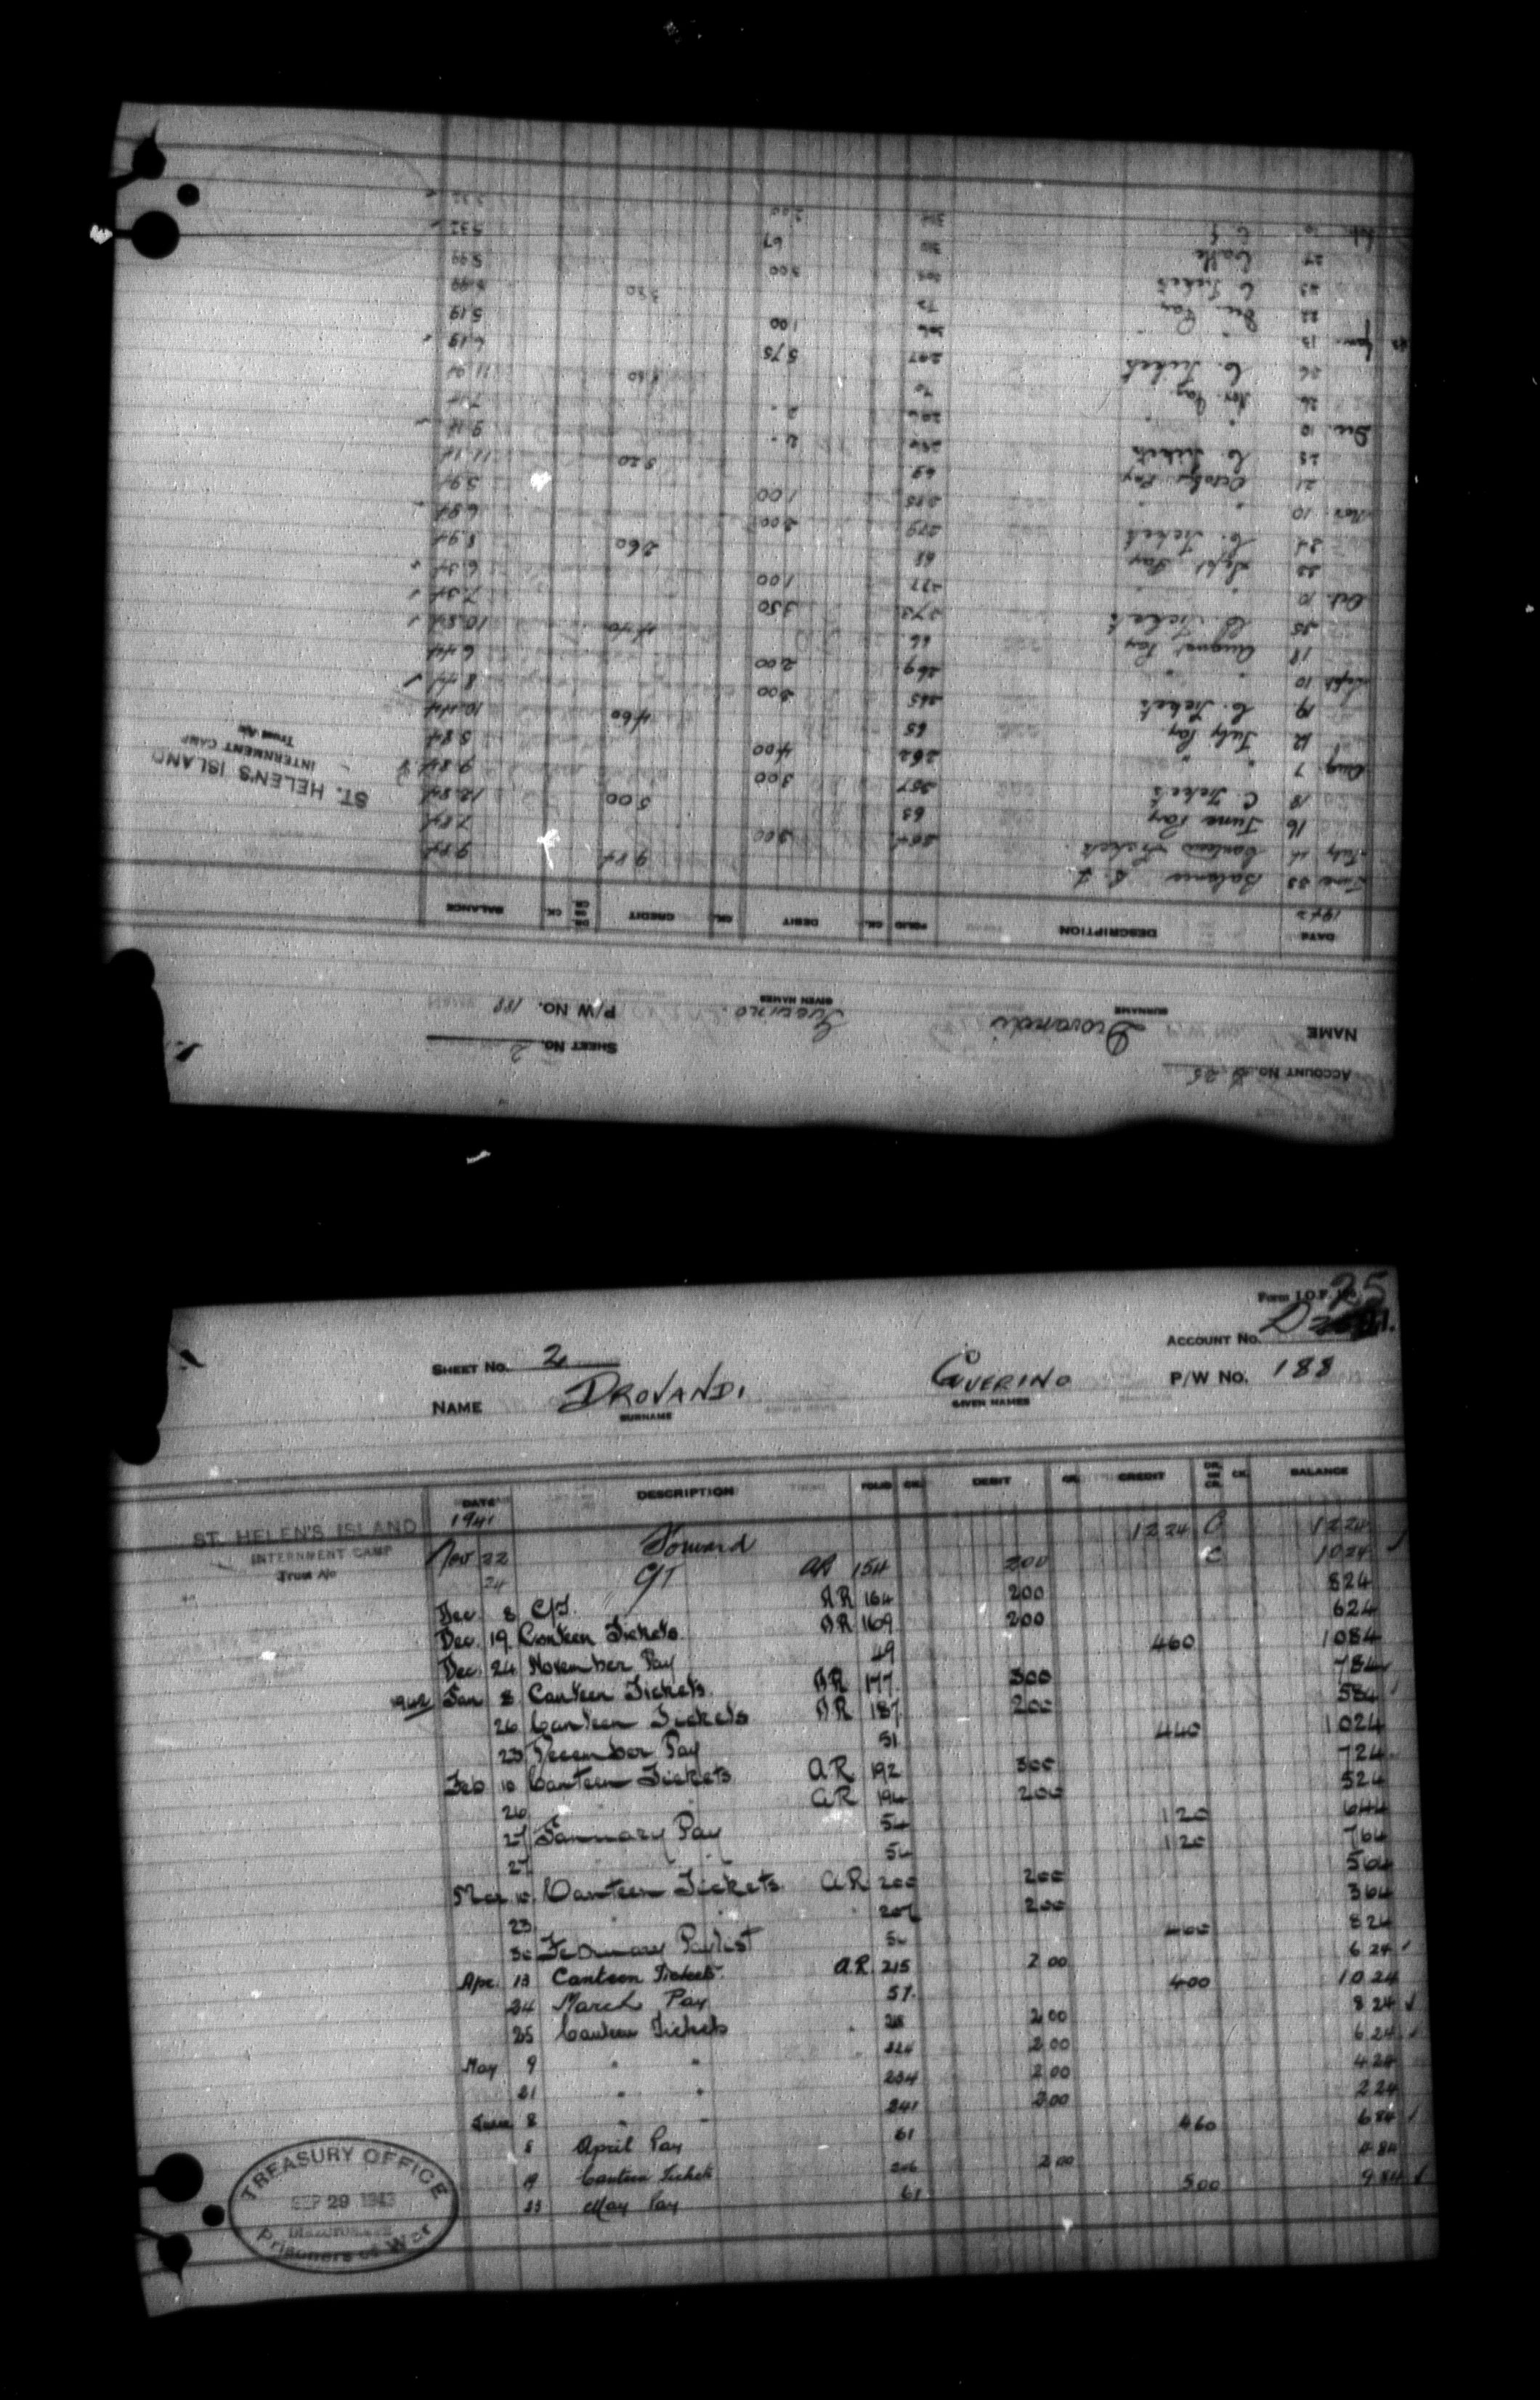 ACCOUNT No. D 25
SHEET No. 2
NAME Drovandi Guerino. P/W No. 188
SURNAME GIVEN NAMES
DATE DESCRIPTION FOLIO CK. DEBIT CK. CREDIT DR. OR CR. CK. BALANCE
1942
June 23 Balance 9 84 9 84
July 11 Canteen Tickets 7.84
16 June Pay 63 5 00 12.84
18 C. Tickets 257 3 00 9 84
Aug 7 " " 262 4 00 5 84
12 July Pay 65 4 60 10.44
19 C. Tickets 265 8.44
Sept 10 " " 269 2 00 6.44
18 August Pay 66 4 40 10.84
25 C. Tickets 273 3 50 7.34
Oct. 10 " " 277 1 00 6.34
23 Sept. Pay 68 2 60 8.94
24 C. Tickets 279 2 00 6.94
Nov. 10 " " 285 1 00 5.94
21 October Pay 69 5 20 11.14
25 C. Tickets 2 - 9.14
Dec. 10 " " 2 - 7.14
26 Nov. Pay 70 11.94
26 C. Tickets 297 5 75 6.19
Jan. 13 " " 1 00 5.19
22 Dec. Pay 72
23 C. Tickets 3 00 5.99
27 67 5.32
ST. HELEN'S ISLAND
INTERNMENT CAMP
Trust A/c
Form I.O.F. 25
ACCOUNT No. D
SHEET No. 2
NAME DROVANDI GUERINO P/W No. 188
SURNAME GIVEN NAMES
DATE DESCRIPTION FOLIO CK. DEBIT CK. CREDIT DR. OR CR. CK. BALANCE
1941
ST. HELEN'S ISLAND
INTERNMENT CAMP
Trust A/c
Nov 22 Forward 12 24 C 12 24
24 CT AR 154 2 00 C 10 24
Dec. 8 C/T. AR 164 2 00 8 24
Dec. 19 Canteen Tickets AR 169 2 00 6 24
Dec. 24 November Pay 49 4 60 10 84
1942 Jan 8 Canteen Tickets. AR 177 3 00 7 84
26 Canteen Tickets AR 187 2 00 5 84
23 December Pay 51 4 40 10 24
Feb 10 Canteen Tickets AR 192 3 00 7 24
26 " " AR 196 2 00 5 24
27 January Pay 54 1 20 6 44
27 " " 54 1 20 7 64
Mar 10 Canteen Tickets AR 200 2 00 5 64
23 " " 207 2 00 3 64
30 February Paylist 8 24
Apr. 13 Canteen Tickets. A.R. 215 2 00 6 24
24 March Pay 57. 4 00 10 24
25 Canteen Tickets 2 00 8 24
May 9 " " 224 2 00 6 24
21 " " 234 2 00 4 24
June 8 " " 241 2 00 2 24
8 April Pay 61 4 60 6 84
19 Canteen Tickets 246 2 00 4 84
23 May Pay 61 5 00 9 84
TREASURY OFFICE
SEP 29 1943
Prisoners of War